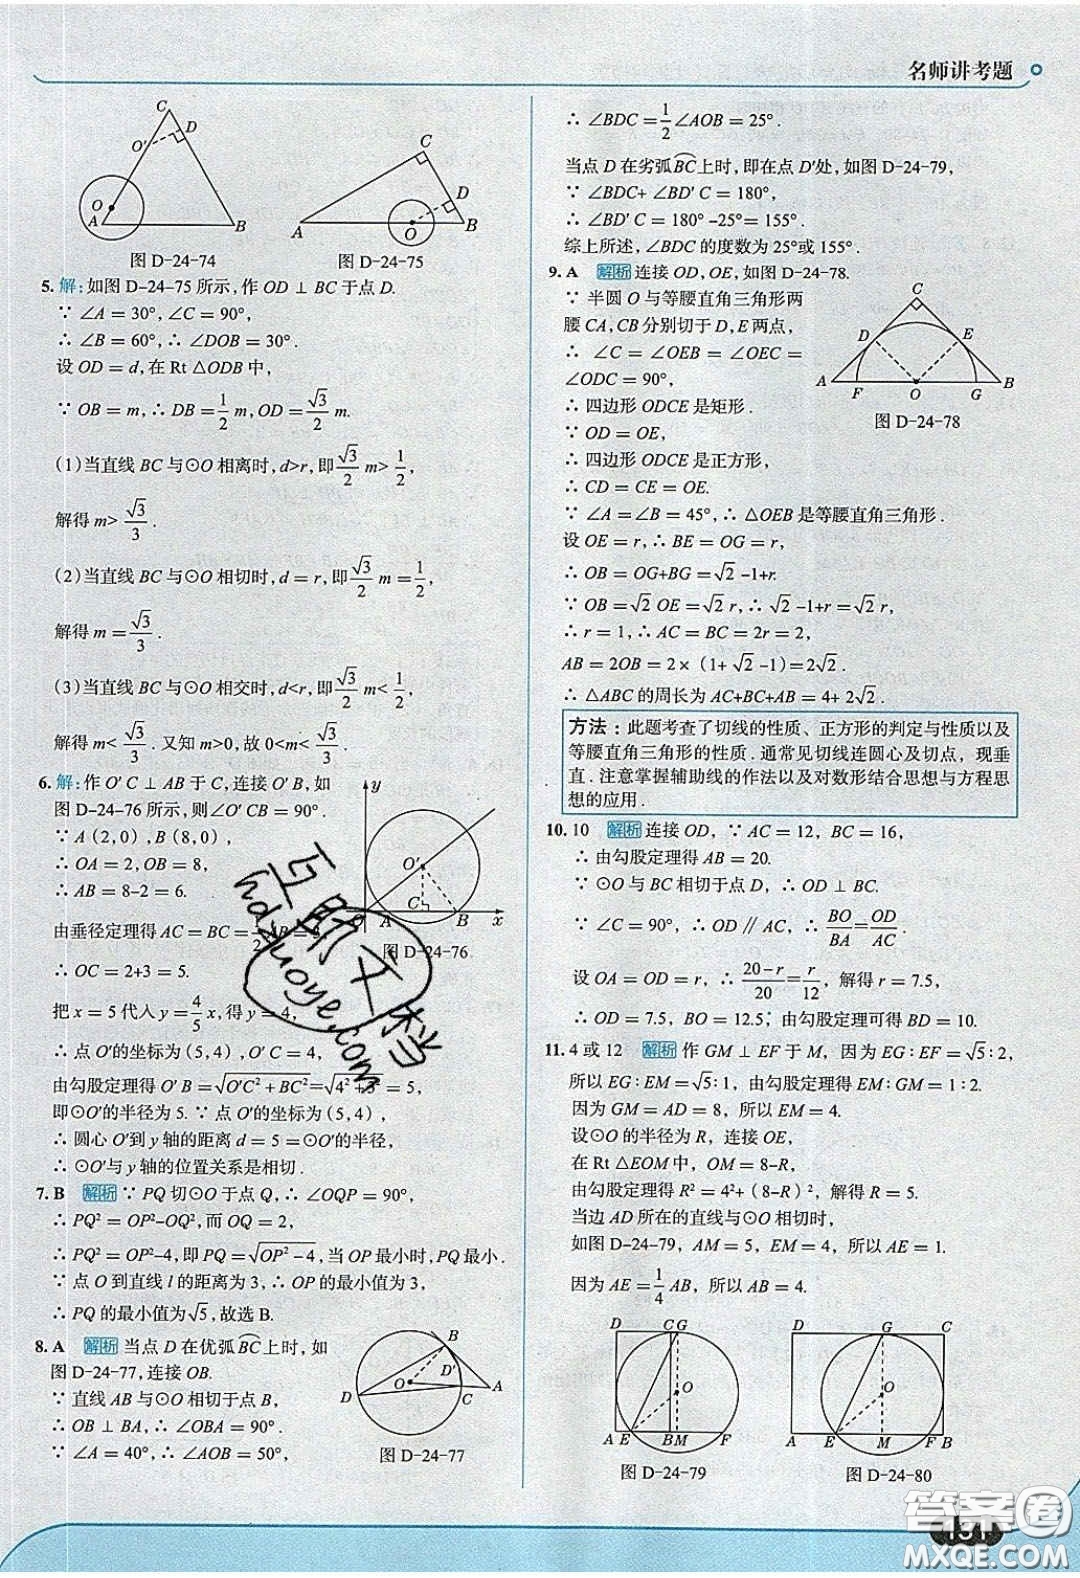 名师讲考题
C
D
O′
O
A
B
图 D-24-74
C
D
A
O
B
图 D-24-75
5. 解:如图 D-24-75 所示,作 OD ⊥ BC 于点 D.
∵ ∠A = 30°, ∠C = 90°,
∴ ∠B = 60°, ∴ ∠DOB = 30°.
设 OD = d,在 Rt △ODB 中,
∵ OB = m, ∴ DB = 1/2 m, OD = √3/2 m.
(1)当直线 BC 与⊙O 相离时, d>r,即 √3/2 m> 1/2,
解得 m> √3/3 .
(2)当直线 BC 与⊙O 相切时, d = r,即 √3/2 m = 1/2,
解得 m = √3/3 .
(3)当直线 BC 与⊙O 相交时, d<r,即 √3/2 m< 1/2,
解得 m< √3/3 . 又知 m>0,故 0<m< √3/3 .
6. 解:作 O′ C ⊥ AB 于 C,连接 O′ B,如
图 D-24-76 所示,则∠O′ CB = 90°.
∵ A (2,0), B (8,0),
∴ OA = 2, OB = 8,
∴ AB = 8-2 = 6.
由垂径定理得 AC = BC = 1/2 AB = 3,
∴ OC = 2+3 = 5.
把 x = 5 代入 y = 4/5 x,得 y = 4,
∴ 点 O′的坐标为(5,4), O′ C = 4,
由勾股定理得 O′ B = √(O′C² + BC²) = √(4² +3²) = 5,
即⊙O′的半径为 5. ∵ 点 O′的坐标为(5,4),
∴ 圆心 O′到 y 轴的距离 d = 5 = ⊙O′的半径,
∴ ⊙O′与 y 轴的位置关系是相切.
y
O′
O
A
C
B
x
图 D-24-76
7. B 解析 ∵ PQ 切⊙O 于点 Q, ∴ ∠OQP = 90°,
∴ PQ² = OP²-OQ²,而 OQ = 2,
∴ PQ² = OP²-4,即 PQ = √(OP² -4),当 OP 最小时, PQ 最小.
∵ 点 O 到直线 l 的距离为 3, ∴ OP 的最小值为 3,
∴ PQ 的最小值为√5,故选 B.
8. A 解析 当点 D 在优弧BC上时,如
图 D-24-77,连接 OB.
∵ 直线 AB 与⊙O 相切于点 B,
∴ OB ⊥ BA, ∴ ∠OBA = 90°,
∵ ∠A = 40°, ∴ ∠AOB = 50°,
B
O
D′
D
C
A
图 D-24-77
∴ ∠BDC = 1/2 ∠AOB = 25°.
当点 D 在劣弧BC上时,即在点 D′处,如图 D-24-79,
∵ ∠BDC+ ∠BD′ C = 180°,
∴ ∠BD′ C = 180° -25°= 155°.
综上所述, ∠BDC 的度数为 25°或 155°.
9. A 解析 连接 OD, OE,如图 D-24-78.
∵ 半圆 O 与等腰直角三角形两
腰 CA, CB 分别切于 D, E 两点,
∴ ∠C = ∠OEB = ∠OEC =
∠ODC = 90°,
∴ 四边形 ODCE 是矩形.
∵ OD = OE,
∴ 四边形 ODCE 是正方形,
∴ CD = CE = OE.
∵ ∠A = ∠B = 45°, ∴ △OEB 是等腰直角三角形.
设 OE = r, ∴ BE = OG = r,
∴ OB = OG+BG = √2 -1+r.
∵ OB = √2 OE = √2 r, ∴ √2 -1+r = √2 r,
∴ r = 1, ∴ AC = BC = 2r = 2,
AB = 2OB = 2× (1+ √2 -1)=2√2 .
∴ △ABC 的周长为 AC+BC+AB = 4+ 2√2 .
C
D
E
A
F
O
G
B
图 D-24-78
方法:此题考查了切线的性质、正方形的判定与性质以及
等腰直角三角形的性质. 通常见切线连圆心及切点,现垂
直. 注意掌握辅助线的作法以及对数形结合思想与方程思
想的应用.
10. 10 解析 连接 OD, ∵ AC = 12, BC = 16,
∴ 由勾股定理得 AB = 20.
∵ ⊙O 与 BC 相切于点 D, ∴ OD ⊥ BC.
∵ ∠C = 90°, ∴ OD ∥ AC, ∴ BO/BA = OD/AC.
设 OA = OD = r, ∴ (20-r)/20 = r/12,解得 r = 7.5,
∴ OD = 7.5, BO = 12.5;由勾股定理可得 BD = 10.
11. 4 或 12 解析 作 GM ⊥ EF 于 M,因为 EG : EF = √5 : 2,
所以 EG : EM = √5 : 1,由勾股定理得 EM : GM = 1 : 2.
因为 GM = AD = 8,所以 EM = 4.
设⊙O 的半径为 R,连接 OE,
在 Rt △EOM 中, OM = 8-R,
由勾股定理得 R² = 4²+ (8-R)²,解得 R = 5.
当边 AD 所在的直线与⊙O 相切时,
如图 D-24-79, AM = 5, EM = 4,所以 AE = 1.
因为 AE = 1/4 AB,所以 AB = 4.
D
C G
O
A E
B M
F
图 D-24-79
D
G
C
O
A
E
M
F B
图 D-24-80
互联文档
hdzuoye.com
131
答案圈
MXQE.COM